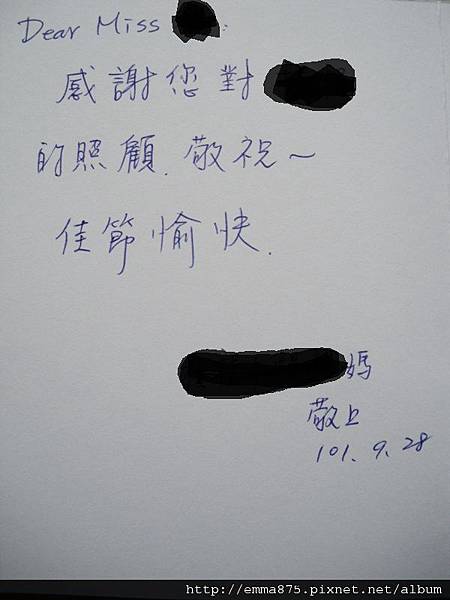 Dear Miss :
感謝您對
的照顧. 敬祝~
佳節愉快.
媽
敬上
101. 9. 28
http://emma875.pixnet.net/album